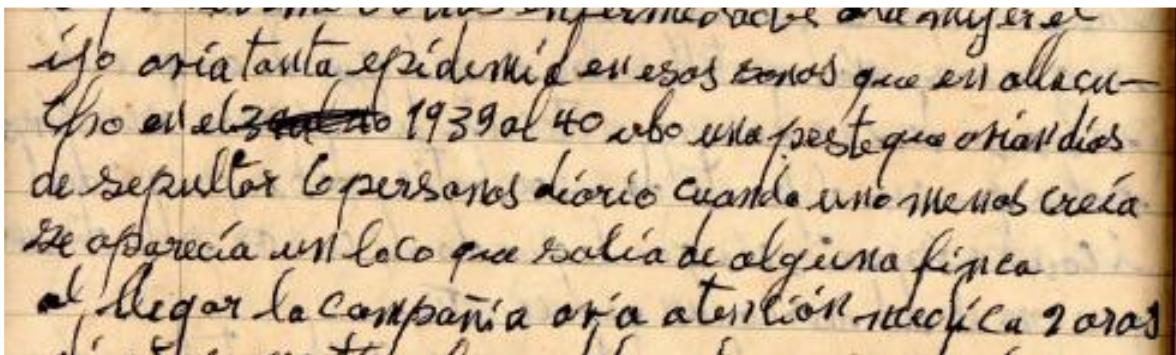 enfermedades
ijo avia tanta epidemia en esas zonas que en allacu-
cho en el 1939 al 40 ubo una peste que avian dias
de sepultar 6 personas diario cuando uno menos creia
se aparecía un loco que salia de alguna finca
al llegar la compañia avia atención medica 2 aras